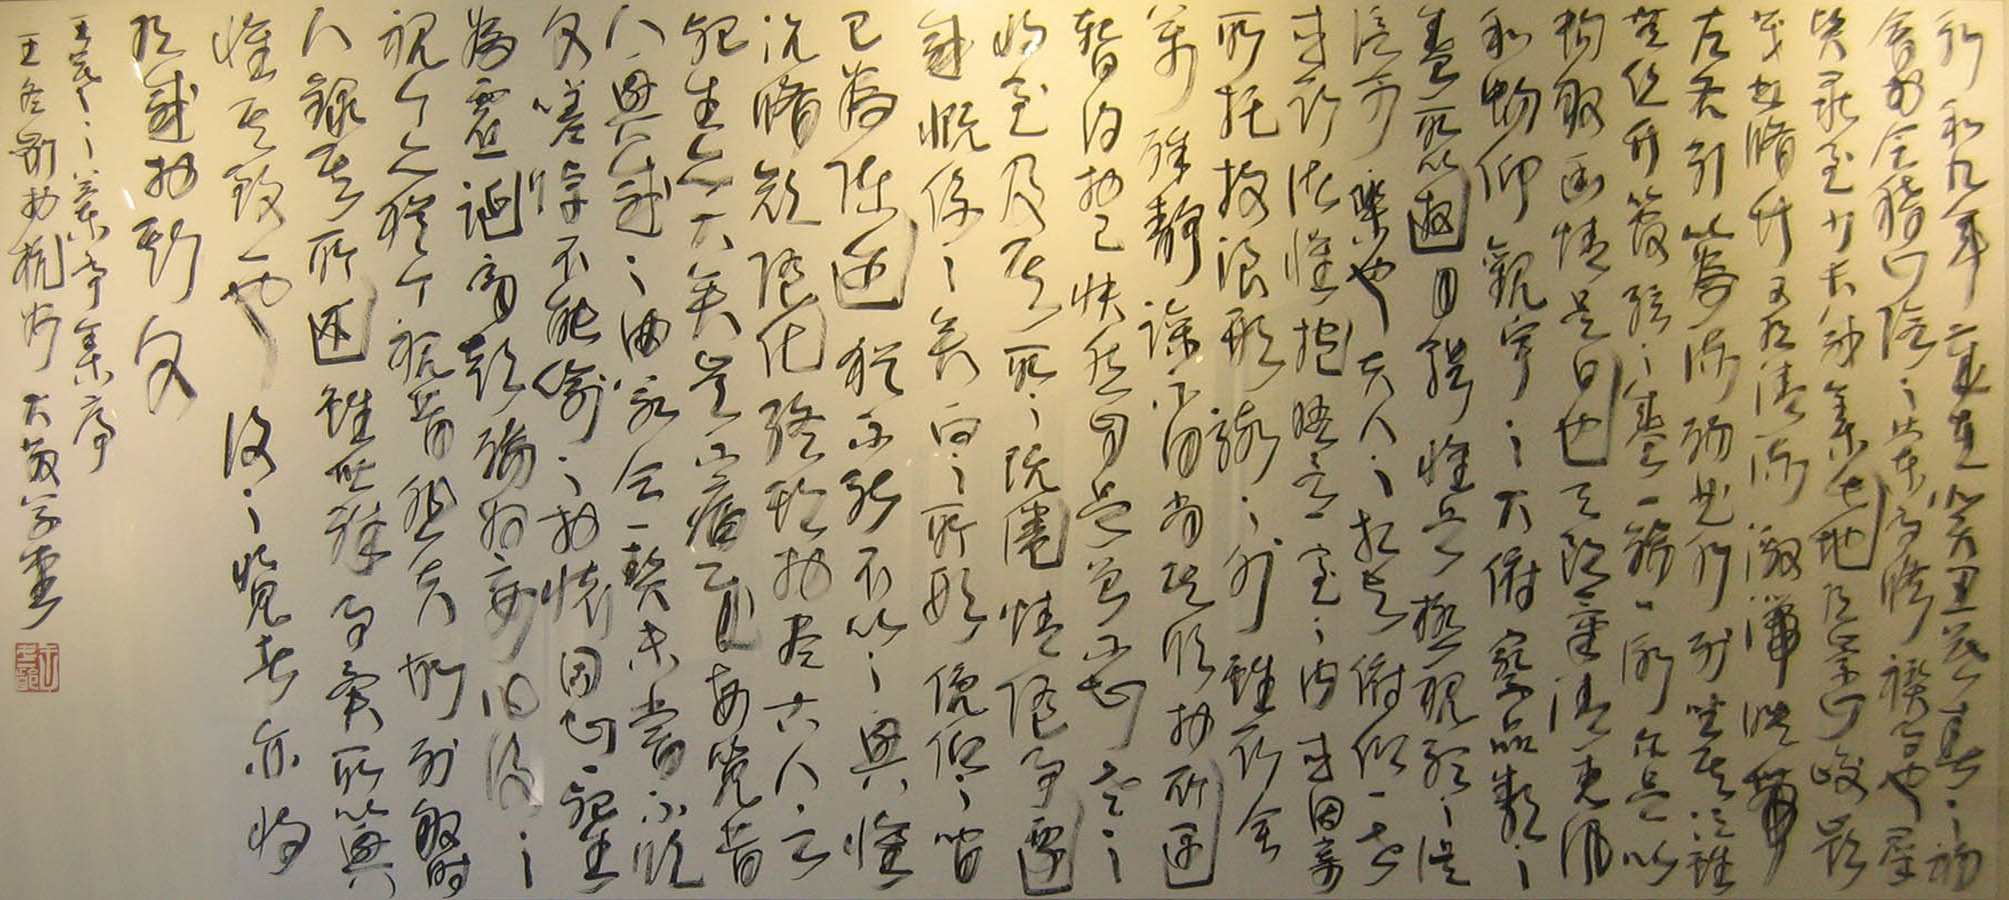 永和九年歲在癸丑暮春之初
會於會稽山陰之蘭亭脩禊事也群
賢畢至少長咸集此地有崇山峻嶺
茂林脩竹又有清流激湍映帶
左右引以為流觴曲水列坐其次雖
無絲竹管弦之盛一觴一詠亦足以
暢敘幽情是日也天朗氣清惠風
和暢仰觀宇宙之大俯察品類之
盛所以遊目騁懷足以極視聽之娛
信可樂也夫人之相與俯仰一世
或取諸懷抱悟言一室之內或因寄
所託放浪形骸之外雖取舍
萬殊靜躁不同當其欣於所遇
暫得於己快然自足曾不知老之
將至及其所之既倦情隨事遷
感慨係之矣向之所欣俛仰之間
已為陳迹猶不能不以之興懷
況脩短隨化終期於盡古人云
死生亦大矣豈不痛哉每覽昔
人興感之由若合一契未嘗不臨
文嗟悼不能喻之於懷固知一死生
為虛誕齊彭殤為妄作後之
視今亦猶今之視昔悲夫故列敘時
人錄其所述雖世殊事異所以興
懷其致一也後之覽者亦將
有感於斯文
王羲之蘭亭集序
王冬齡於杭州大散草堂